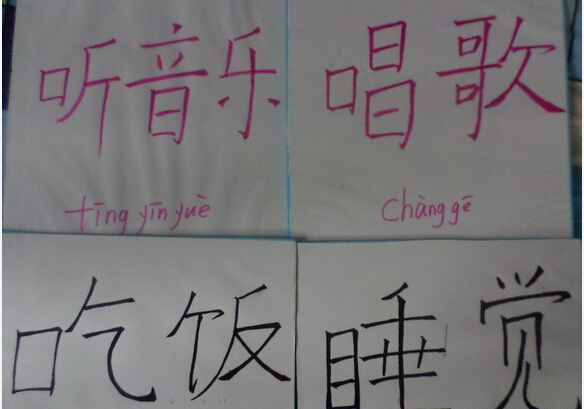 听音乐
tīng yīn yuè
唱歌
chàng gē
吃饭
睡觉